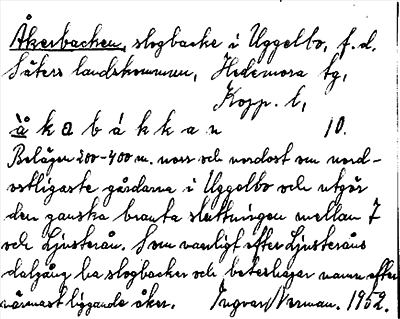 Åkerbacken, slogbacke i Uggelbo, f.d.
Säters landskommun, Hedemora tg,
Kopp. l,
å k a b á k k a n 10.
Belägen 200-400 m. norr och nordost om nord-
ostligaste gårdarna i Uggelbo och utgör
den ganska branta sluttningen mellan 7
och Ljusterån. Som vanligt efter Ljusteråns
dalgång ha slogbackar och beteshagar namn efter
närmast liggande åker. Ingvar Norman. 1952.